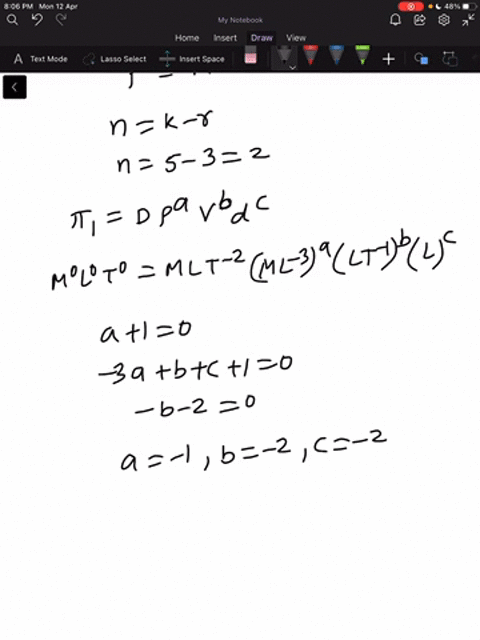 8:06 PM Mon 12 Apr
48%
My Notebook
Home Insert Draw View
Text Mode Lasso Select Insert Space
n = k-r
n = 5-3 = 2
π₁ = D ρᵃ Vᵇ dᶜ
M⁰L⁰T⁰ = MLT⁻² (ML⁻³)ᵃ (LT⁻¹)ᵇ (L)ᶜ
a+1=0
-3a+b+c+1=0
-b-2=0
a=-1, b=-2, c=-2